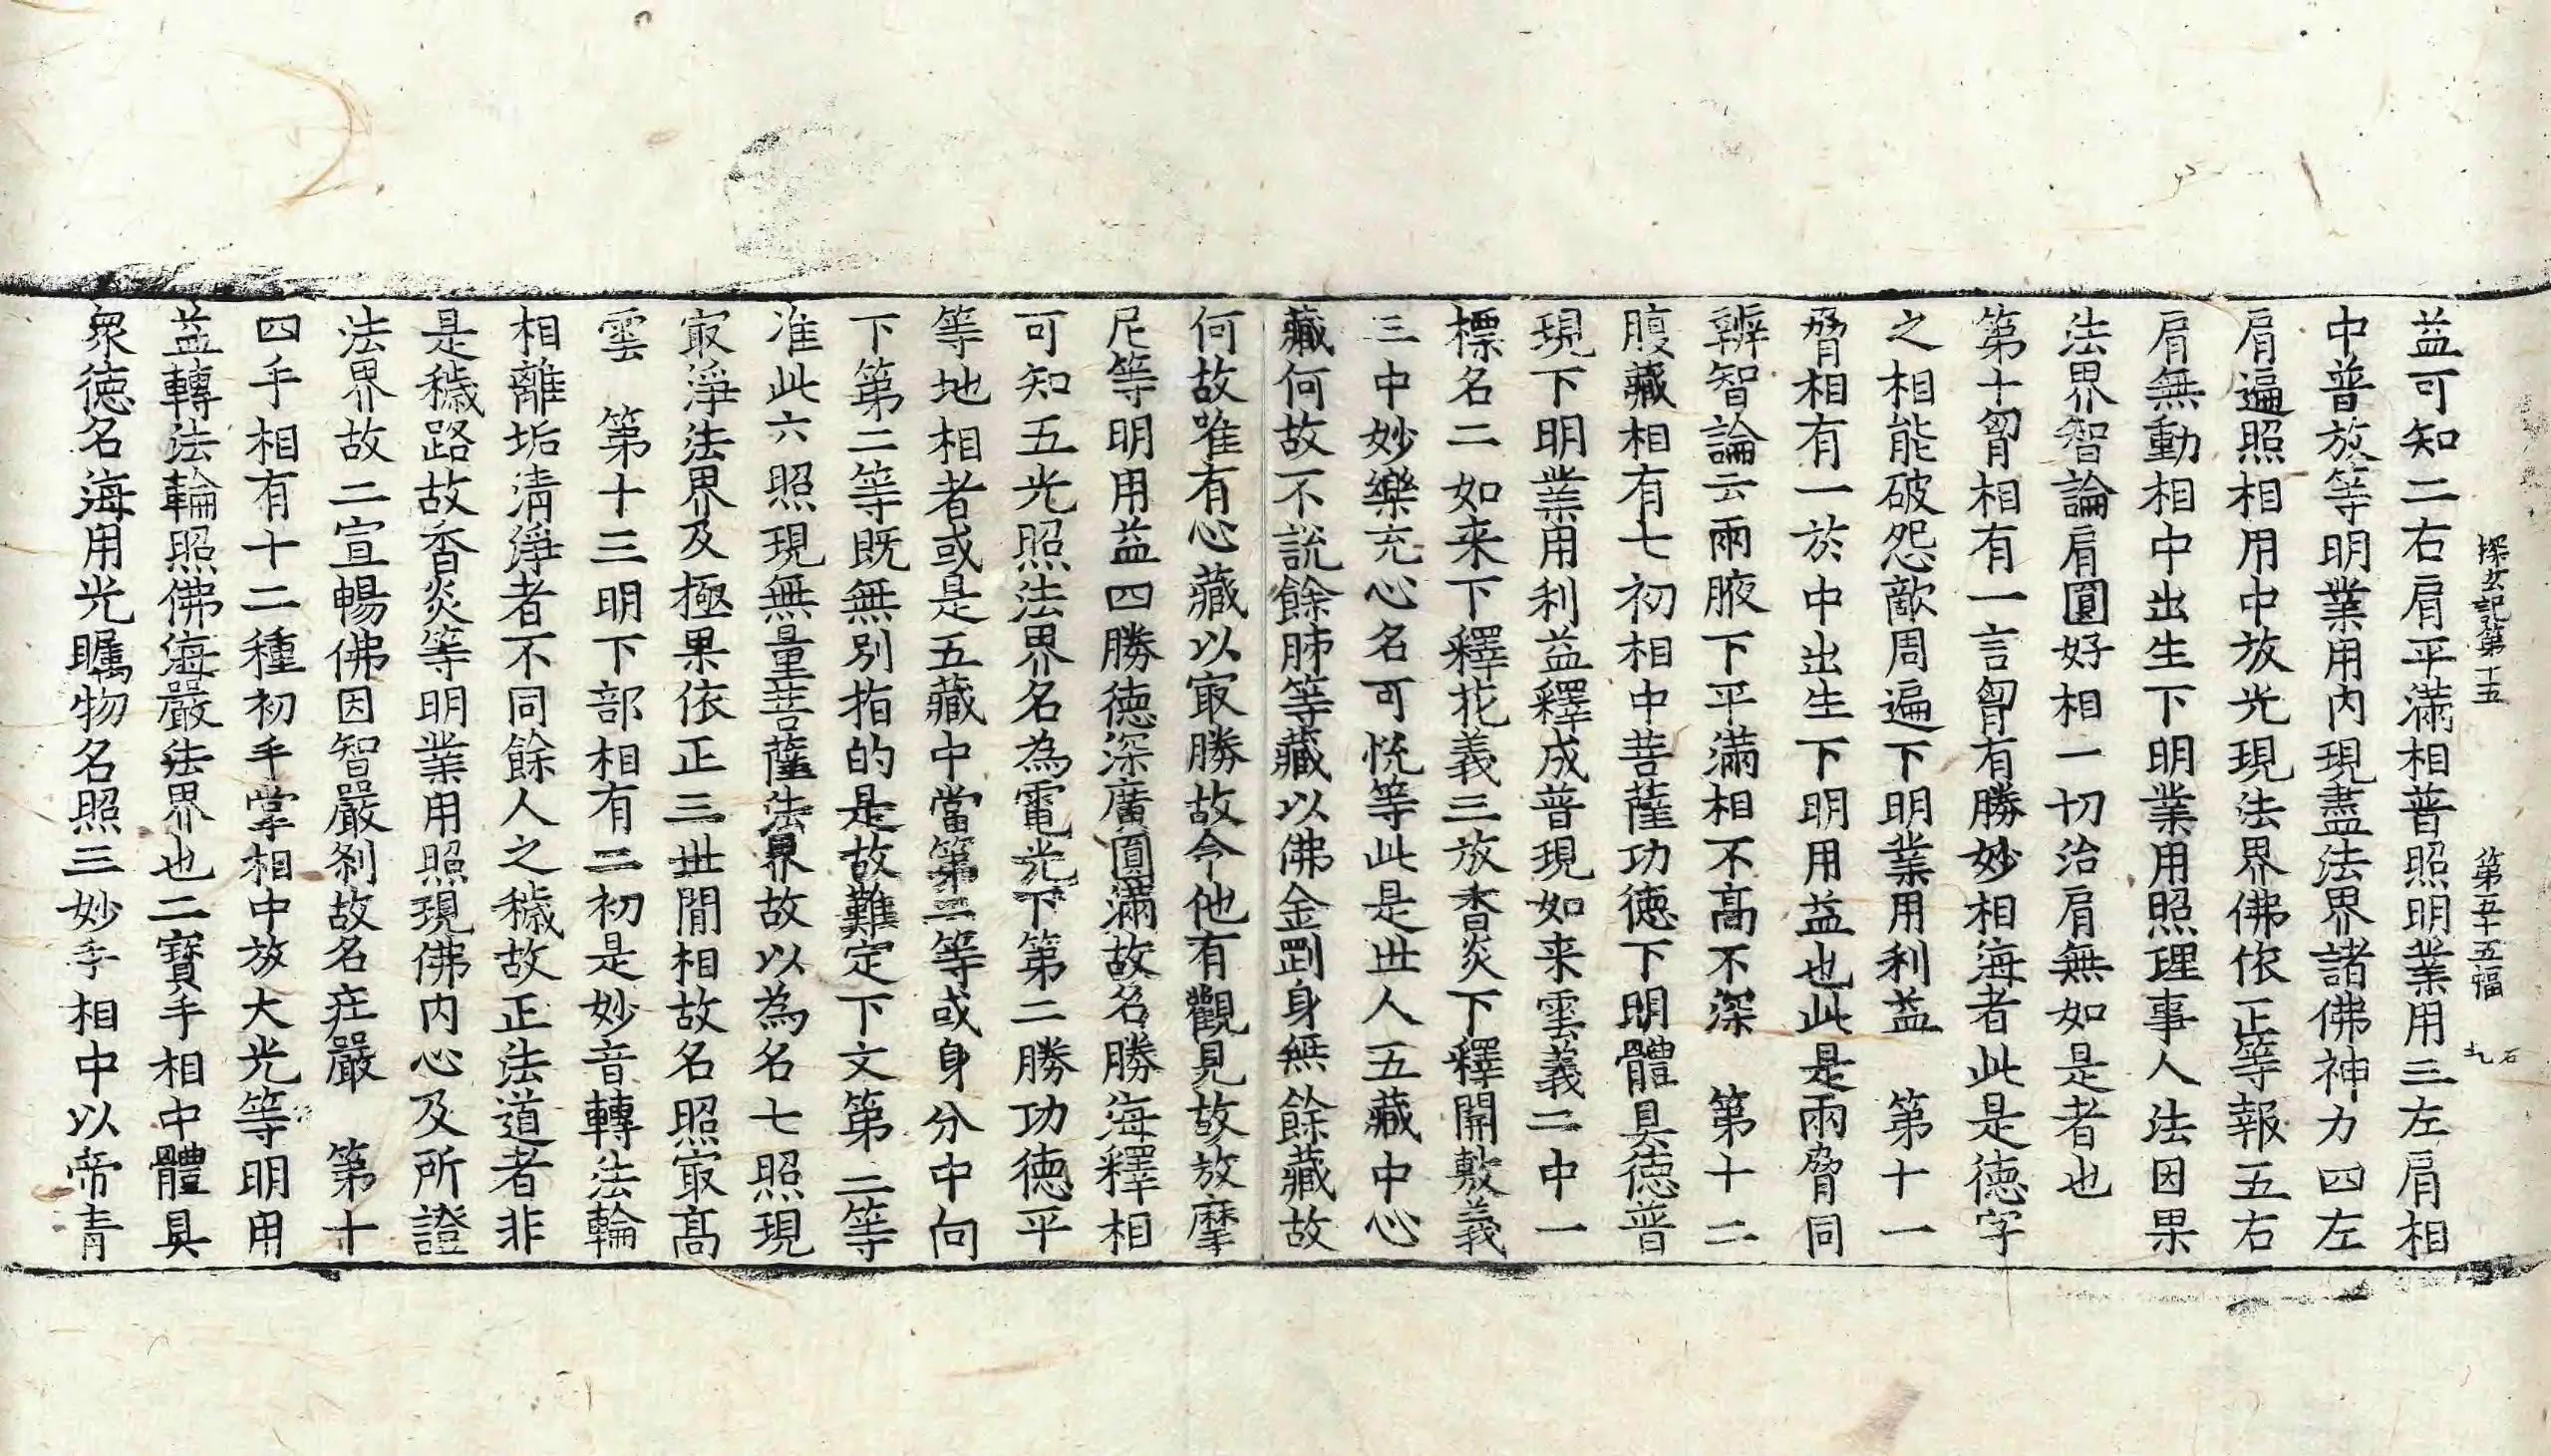 探玄記第十五 第五十五福 石
益可知二右肩平滿相普照明業用三左肩相
中普放等明業用内現盡法界諸佛神力四左
肩遍照相用中放光現法界佛依正等報五右
肩無動相中出生下明業用照理事人法因果
法界智論肩圓好相一切治肩無如是者也
第十胷相有一言胷有勝妙相海者此是德字
之相能破怨敵周遍下明業用利益 第十一
脅相有一於中出生下明用益也此是兩脅同
辨智論云兩腋下平滿相不髙不深 第十二
腹藏相有七初相中菩薩功德下明體具德普
現下明業用利益釋成普現如来雲義二中一
標名二如来下釋花義三放香炎下釋開敷義
三中妙樂充心名可恱等此是世人五藏中心
藏何故不説餘肺等藏以佛金剛身無餘藏故
何故唯有心藏以㝡勝故令他有觀見故放摩
尼等明用益四勝德深廣圓滿故名勝海釋相
可知五光照法界名為電光下第二勝功德平
等地相者或是五藏中當第二等或身分中向
下第二等既無別指的是故難定下文第二等
准此六照現無量菩薩法界故以為名七照現
㝡淨法界及極果依正三世間相故名照㝡髙
雲 第十三明下部相有二初是妙音轉法輪
相離垢清淨者不同餘人之穢故正法道者非
是穢路故香炎等明業用照現佛内心及所證
法界故二宣暢佛因智嚴刹故名庄嚴 第十
四手相有十二種初手掌相中放大光等明用
益轉法輪照佛海嚴法界也二寶手相中體具
衆德名海用光矚物名照三妙手相中以帝青